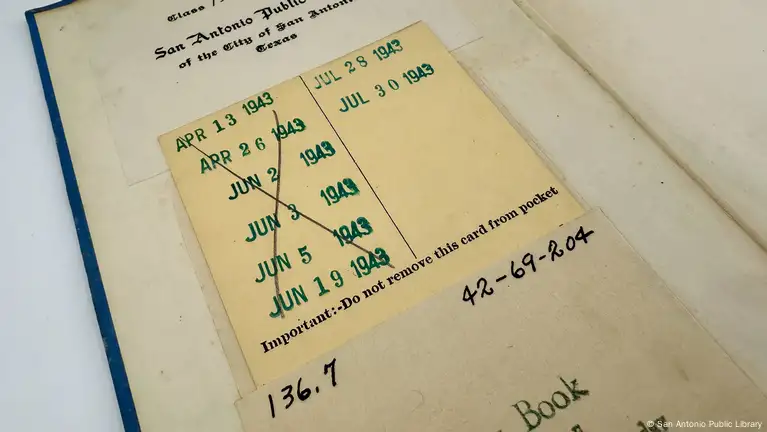 Class
San Antonio Public
of the City of San Antonio
Texas
APR 13 1943
APR 26 1943
JUN 2 1943
JUN 3 1943
JUN 5 1943
JUN 19 1943
JUL 28 1943
JUL 30 1943
Important:-Do not remove this card from pocket
42-69-204
136.7
Book
© San Antonio Public Library